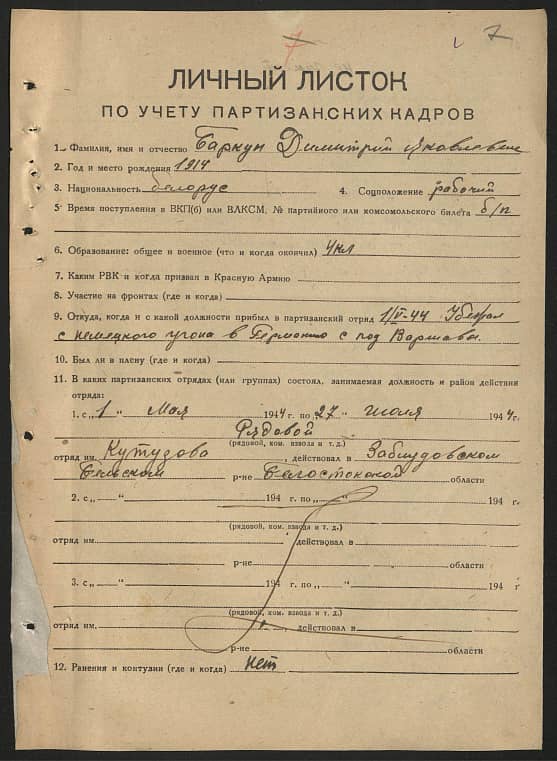 7 7
ЛИЧНЫЙ ЛИСТОК
ПО УЧЕТУ ПАРТИЗАНСКИХ КАДРОВ
1. Фамилия, имя и отчество Баркун Димитрий Яковлевич
2. Год и место рождения 1914
3. Национальность белорус 4. Соцположение рабочий
5. Время поступления в ВКП(б) или ВЛКСМ, № партийного или комсомольского билета б/п
6. Образование: общее и военное (что и когда окончил) 4 кл
7. Каким РВК и когда призван в Красную Армию
8. Участие на фронтах (где и когда)
9. Откуда, когда и с какой должности прибыл в партизанский отряд 1/V-44 Убежал
с немецкого угона в Германию с под Варшавы.
10. Был ли в плену (где и когда)
11. В каких партизанских отрядах (или группах) состоял, занимаемая должность и район действия
отряда:
1. с „ 1 " Мая 1944 г. по „ 27 " июля 1944 г.
Рядовой
(рядовой, ком. взвода и т. д.)
отряд им. Кутузова, действовал в Заблудовском
Бельском р-не Белостокской области
2. с „ " 194 г. по „ " 194 г.
(рядовой, ком. взвода и т. д.)
отряд им. действовал в
р-не области
3. с „ " 194 г. по „ " 194 г
(рядовой, ком. взвода и т. д.)
отряд им. , действовал в
р-не области
12. Ранения и контузии (где и когда) нет